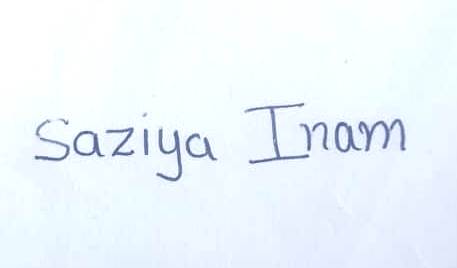 Saziya Inam